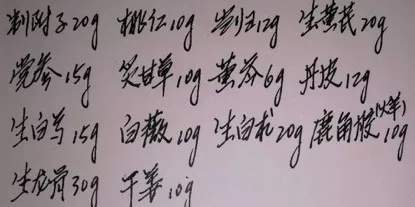 制附子20g 桃仁10g 当归12g 生黄芪20g
党参15g 炙甘草10g 黄芩6g 丹皮12g
生白芍15g 白薇10g 生白术20g 鹿角胶(烊)10g
生龙骨30g 干姜10g